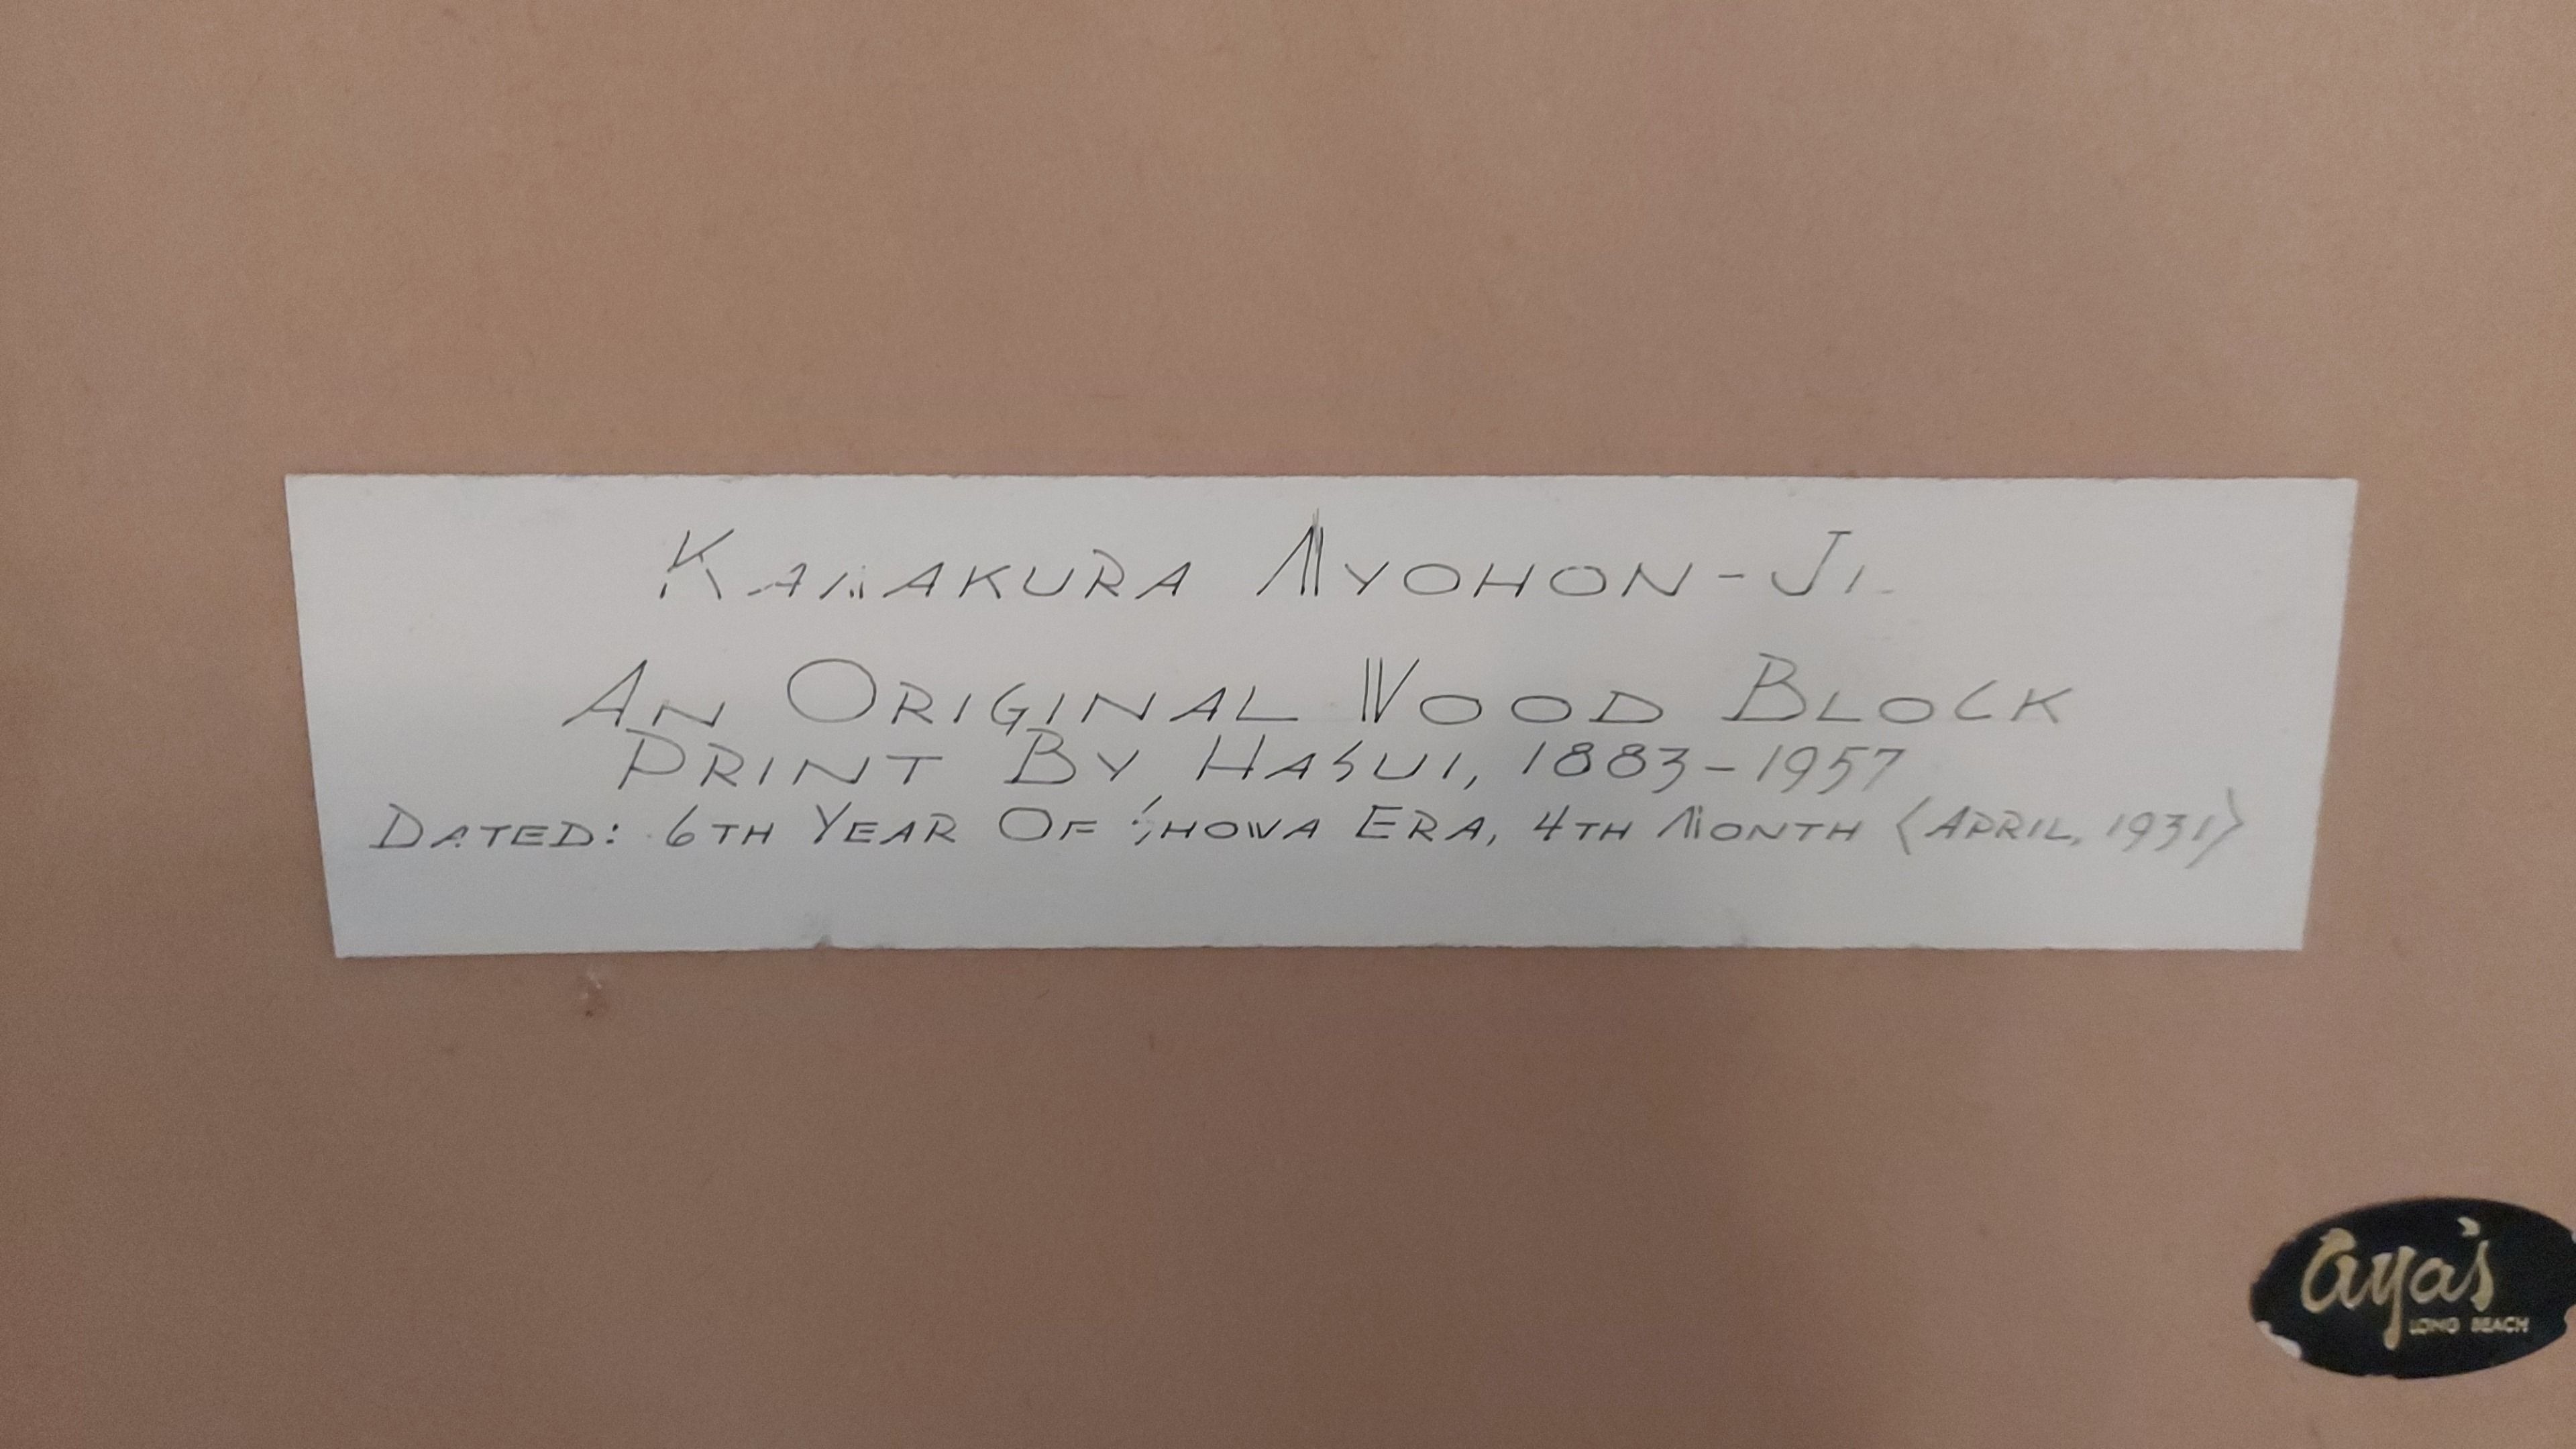 KAMAKURA MYOHON-JI.
AN ORIGINAL WOOD BLOCK
PRINT BY HASUI, 1883-1957
DATED: 6TH YEAR OF SHOWA ERA, 4TH MONTH (APRIL, 1931)
aya's
LONG BEACH